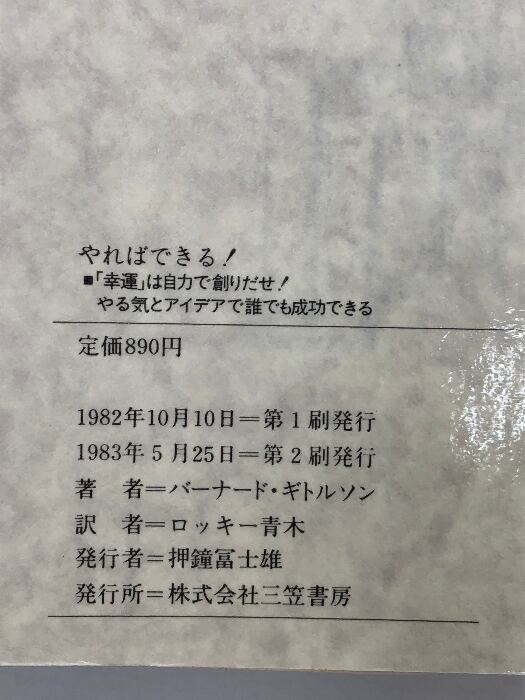 やればできる!
■「幸運」は自力で創りだせ!
やる気とアイデアで誰でも成功できる
定価890円
1982年10月10日=第1刷発行
1983年5月25日=第2刷発行
著 者=バーナード・ギトルソン
訳 者=ロッキー青木
発行者=押鐘冨士雄
発行所=株式会社三笠書房